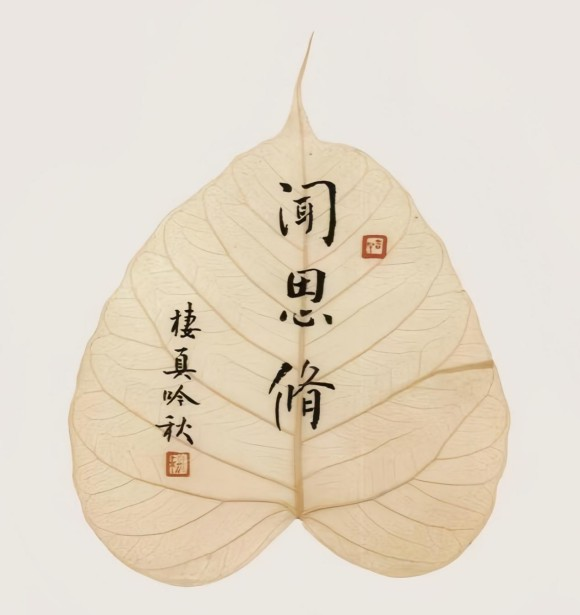 闻思脩
棲真吟秋